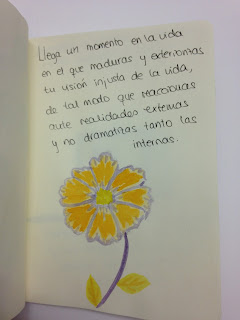 Llega un momento en la vida
en el que maduras y exteriorizas
tu visión injusta de la vida,
de tal modo que reaccionas
ante realidades externas
y no dramatizas tanto las
internas.